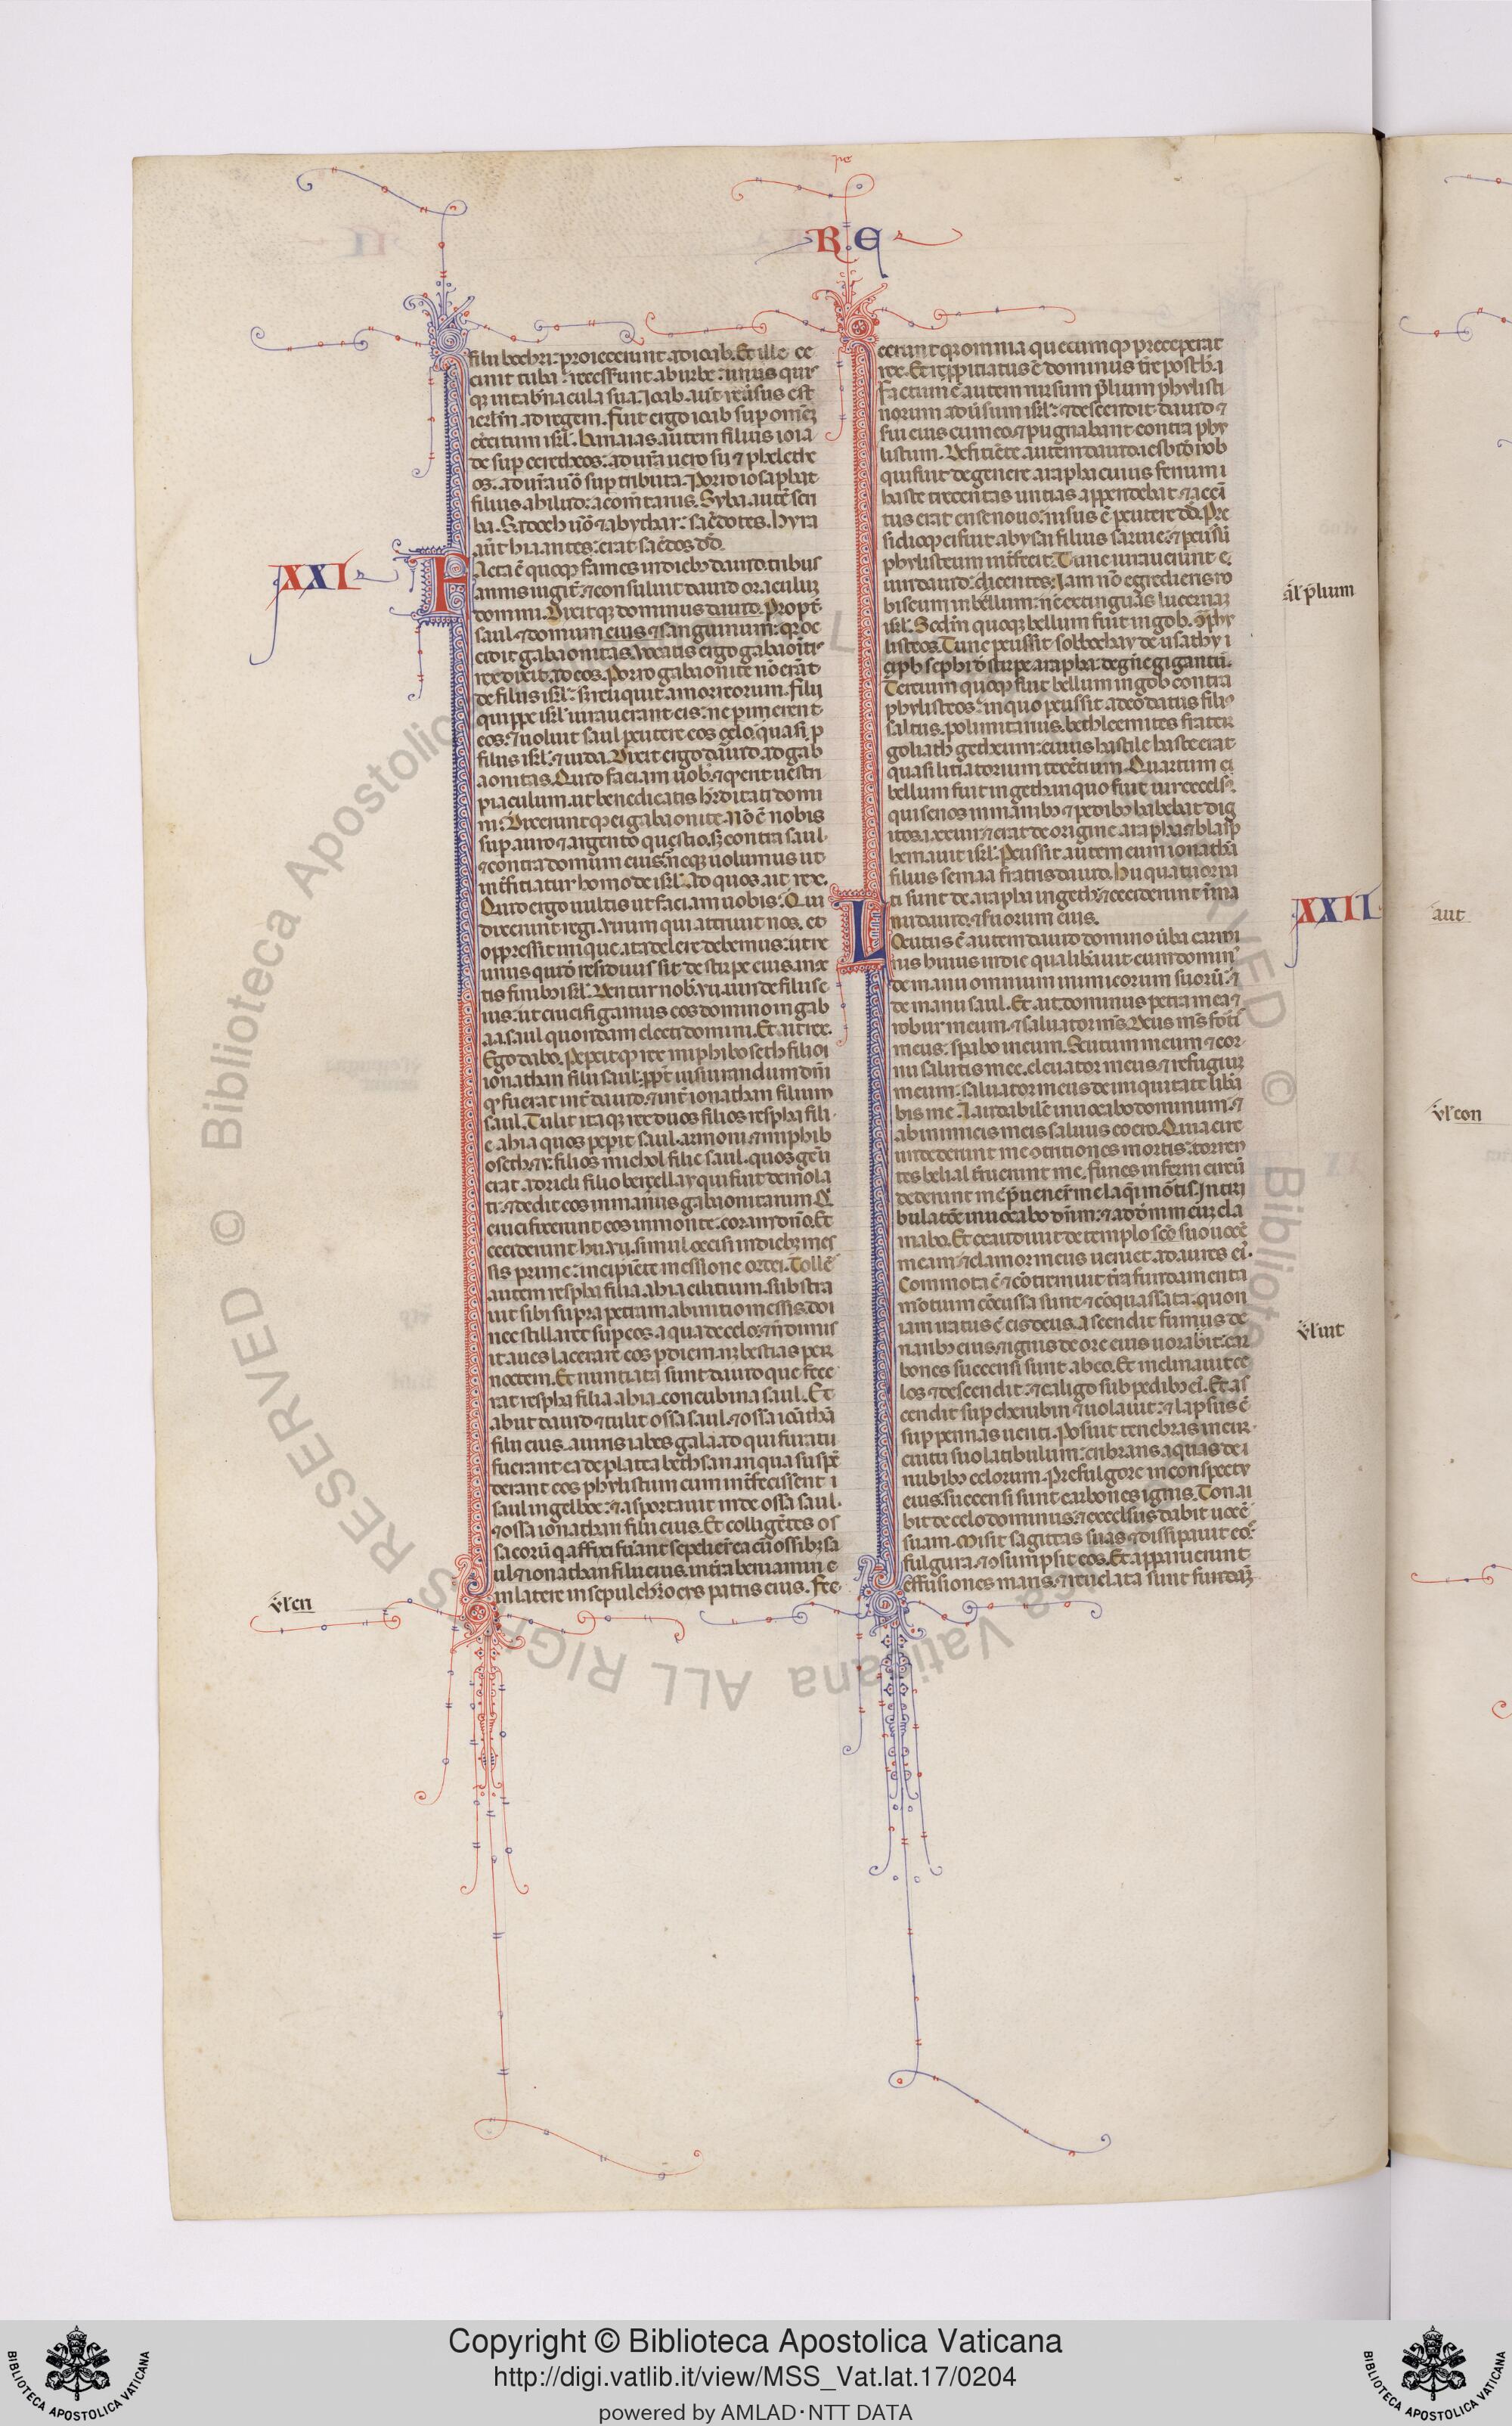 RE
filii bochri: proiecerunt ad ioab. Et ille ce
cinit tuba ⁊ recesserunt ab urbe: unusquis
q; in tab̄nacula sua. Ioab aut̄ reūsus est
ierlm̄ ad regem. Fuit ergo ioab sup om̄ez
ex̄citum isrl̄. banaias autem filius ioia
filius ahilud: a com̄tariis. Syba. autē scri
ba. Sadoch ūo ⁊ abythar: sac̄dotes. hyra
aūt hiarites: erat sac̄dos dd̄.
XXI
Facta ē quoq; fames in dieb; dauid. tribus
annis iugit̄. ⁊ consuluit dauid oraculuz
domini. Dixitq; dominus dauid. Propt̄
saul ⁊ domum eius ⁊ sanguinum: q; oc
cidit gabaonitas. Vocatis ergo gabaonit̄
rex dixit. ad eos. Porro gabaonite nō erāt
de filiis isrl̄: s; reliquie amorreorum. Filii
quippe isrl̄ iurauerant eis: ne p̄imerent
eos. ⁊ uoluit saul p̄cutere eos zelo. quasi p
filiis isrl̄ ⁊ iuda. Dixit ergo dauid. ad gab
aonitas. Quid faciam uob̄. ⁊ q̄ erit uestri
piaculum. ut benedicatis h̄editati domi
ni. Dixeruntq; ei gabaonite. Nō ē nobis
sup auro ⁊ argento questio. s; contra saul
⁊ contra domum eius. neq; uolumus ut
int̄ficiatur homo de isrl̄. Ad quos ait rex.
Quid ergo uultis ut faciam uobis: Qui
dixerunt regi. Virum qui attriuit nos. et
oppressit inique. ita delere debemus: ut ne
unus quidē residuus sit de stirpe eius. in cūc
tis finib; isrl̄. Dentur nob̄. vii. uiri de filiis e
ius: ut crucifigamus eos domino in gab
aa. saul quondam electi domini. Et ait rex.
Ego dabo. Pepercitq; rex miphiboseth filio i
ionathan filii saul: pp̄t iusiurandum dn̄i
q̄ fuerat int̄ dauid. ⁊ int̄ ionathan filium
saul. Tulit itaq; rex duos filios respha fili
e abia quos pep̄it saul. armoni. ⁊ miphib
oseth. ⁊ v. filios michol filie saul. quos gen̄u
erat adrieli filio berzellay qui fuit de mola
ti: ⁊ dedit eos in manus gabaonitarum. Q̄
crucifixerunt eos in monte. coram dn̄o. Et
ceciderunt hii. vii. simul occisi in dieb; mes
sis prime: incipiēte messione ordei. Tollēs
autem respha filia abia cilicium. substra
uit sibi supra petram ab initio messis. doi
nec stillaret sup eos. aqua de celo: ⁊ n̄ dimis
it aues lacerare eos p diem. n; bestias per
noctem. Et nuntiata sunt dauid que fece
rat respha filia abia. concubina saul. Et
abiit dauid ⁊ tulit ossa saul. ⁊ ossa ionathā
filii eius. a uiris iabes galaad qui furati
fuerant ea de platea bethsan. in qua suspē
derant eos phylistiim cum int̄fecissent i
saul in gelboe: ⁊ asportauit inde ossa saul.
⁊ ossa ionathan filii eius. Et colligētes os
sa eorū q̄ affixi fūant sepelier̄t ea cū ossib; sa
ul ⁊ ionathan filii eius. in t̄ra beniamin e
in latere in sepulchro cys patris eius. Fece
vl' en
cerunt q; omnia quecumq; preceperat
rex. Et rep̄pitiatus ē dominus t̄re post h̄. i
Factum ē autem rursum p̄lium phylisti
norum aduersum isrl̄: ⁊ descendit dauid ⁊
serui eius cum eo. ⁊ pugnabant contra phy
listiim. Deficiēte autem dauid. iesbidēnob
qui fuit de genere arapha cuius ferrum i
haste trecentas untias appendebat. ⁊ acci
tus erat ense nouo: nisus ē p̄cutere dd̄. Pre
sidioq; ei fuit abysai filius saruie: ⁊ p̄cussū
phylisteum int̄fecit. Tunc iurauerunt e
uiri dauid: dicentes. Iam nō egredieris no
biscum in bellum: ne extinguas lucernaz
al' p̄lium
isrl̄. Sedm̄ quoq; bellum fuit in gob. 9̄ phy
listeos. Tunc p̄cussit. sobbochay de usathy i
ceph sephi d̄ stirpe arapha. de gn̄e gigantū.
Tertium quoq; fuit bellum in gob contra
phylisteos: in quo p̄cussit adeodatus filiꝰ
saltus. polimitarius. bethleemites frater
goliath getheum: cuius hastile haste erat
quasi litiatorium texētium. Quartum ei
bellum fuit in geth. in quo fuit uir excelsꝰ.
qui senos in manib; ⁊ pedib; habebat dig
itos. i. xxiiii. ⁊ erat de origine arapha. ⁊ blasp
hemauit isrl̄. Percussit autem eum ionathā
filius semaa fratris dauid. Hii quatuor na
ti sunt de arapha in geth. ⁊ ceciderunt in ma
nu dauid. ⁊ seruorum eius.
XXII
Locutus ē autem dauid domino ūba carmi
nis huius in die qua lib̄auit eum dominꝰ
de manu omnium inimicorum suorū. ⁊
de manu saul. Et ait. dominus petra mea ⁊
robur meum. ⁊ saluator ms̄. Deus ms̄ forti
meus: sp̄abo in eum. Scutum meum ⁊ cor
nu salutis mee. eleuator meus ⁊ refugiuz
meum: saluator meus de iniquitate lib̄a
bis me. Laudabilē inuocabo dominum: ⁊
ab inimicis meis saluus ero. Quia circ
umdederunt me 9tritiones mortis: torren
tes belial t̄ruerunt me. Funes inferni circū
dederunt me. p̄uener̄t me laq̄i mōtis. In tri
bulatōe inuocabo dn̄m: ⁊ ad dm̄ meuz cla
mabo. Et exaudiuit de templo sc̄o suo uocē
meam: ⁊ clamor meus ueniet. ad aures eiꝰ.
Commota ē ⁊ cōtremuit t̄ra fundamenta
montium cōcussa sunt ⁊ cōquassata: quon
iam iratus ē eis deus. Ascendit fumus de
naribꝰ eius. ⁊ ignis de ore eius uorabit: car
vl' int
bones succensi sunt ab eo. Et inclinauit ce
los ⁊ descendit: ⁊ caligo sub pedib; eiꝰ. Et as
cendit sup cherubin ⁊ uolauit: ⁊ lapsus ē
sup pennas uenti. Posuit tenebras in cir
cuitu suo latibulum: cribrans aquas de i
nubib; celorum. Pre fulgore in conspectu
eius: succensi sunt carbones ignis. Tonai
bit de celo dominus: ⁊ excelsus dabit uocē
suam. Misit sagittas suas ⁊ dissipauit eos:
fulgura. ⁊ 9sumpsit eos. Et apparuerunt
effusiones maris. ⁊ reuelata sunt fundam̄
aut
vl' con
© Biblioteca Apostolica Vaticana ALL RIGHTS RESERVED
Copyright © Biblioteca Apostolica Vaticana
http://digi.vatlib.it/view/MSS_Vat.lat.17/0204
powered by AMLAD·NTT DATA
BIBLIOTECA APOSTOLICA VATICANA
BIBLIOTECA APOSTOLICA VATICANA